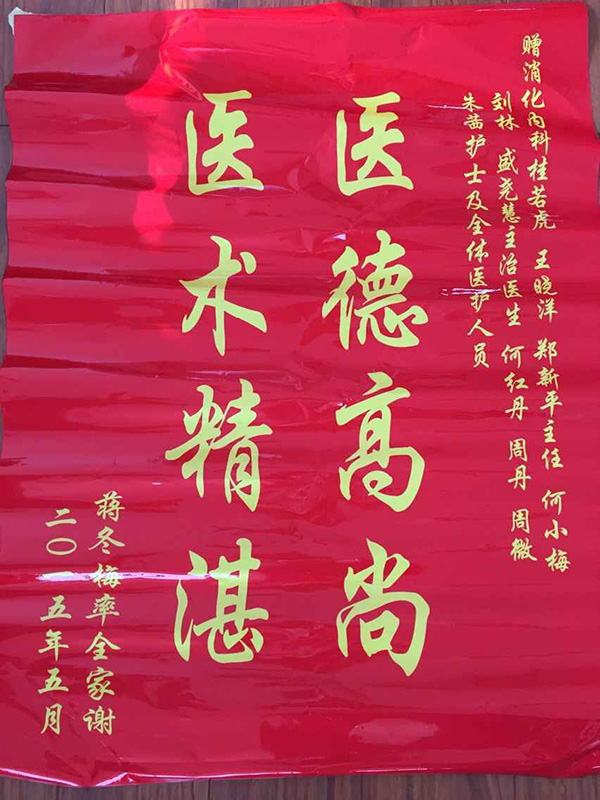 赠消化内科桂若虎 王晓洋 郑新平主任 何小梅
刘林 盛尧慧主治医生 何红丹 周丹 周微
朱茜护士及全体医护人员
医德高尚
医术精湛
蒋冬梅率全家谢
二〇 五年五月